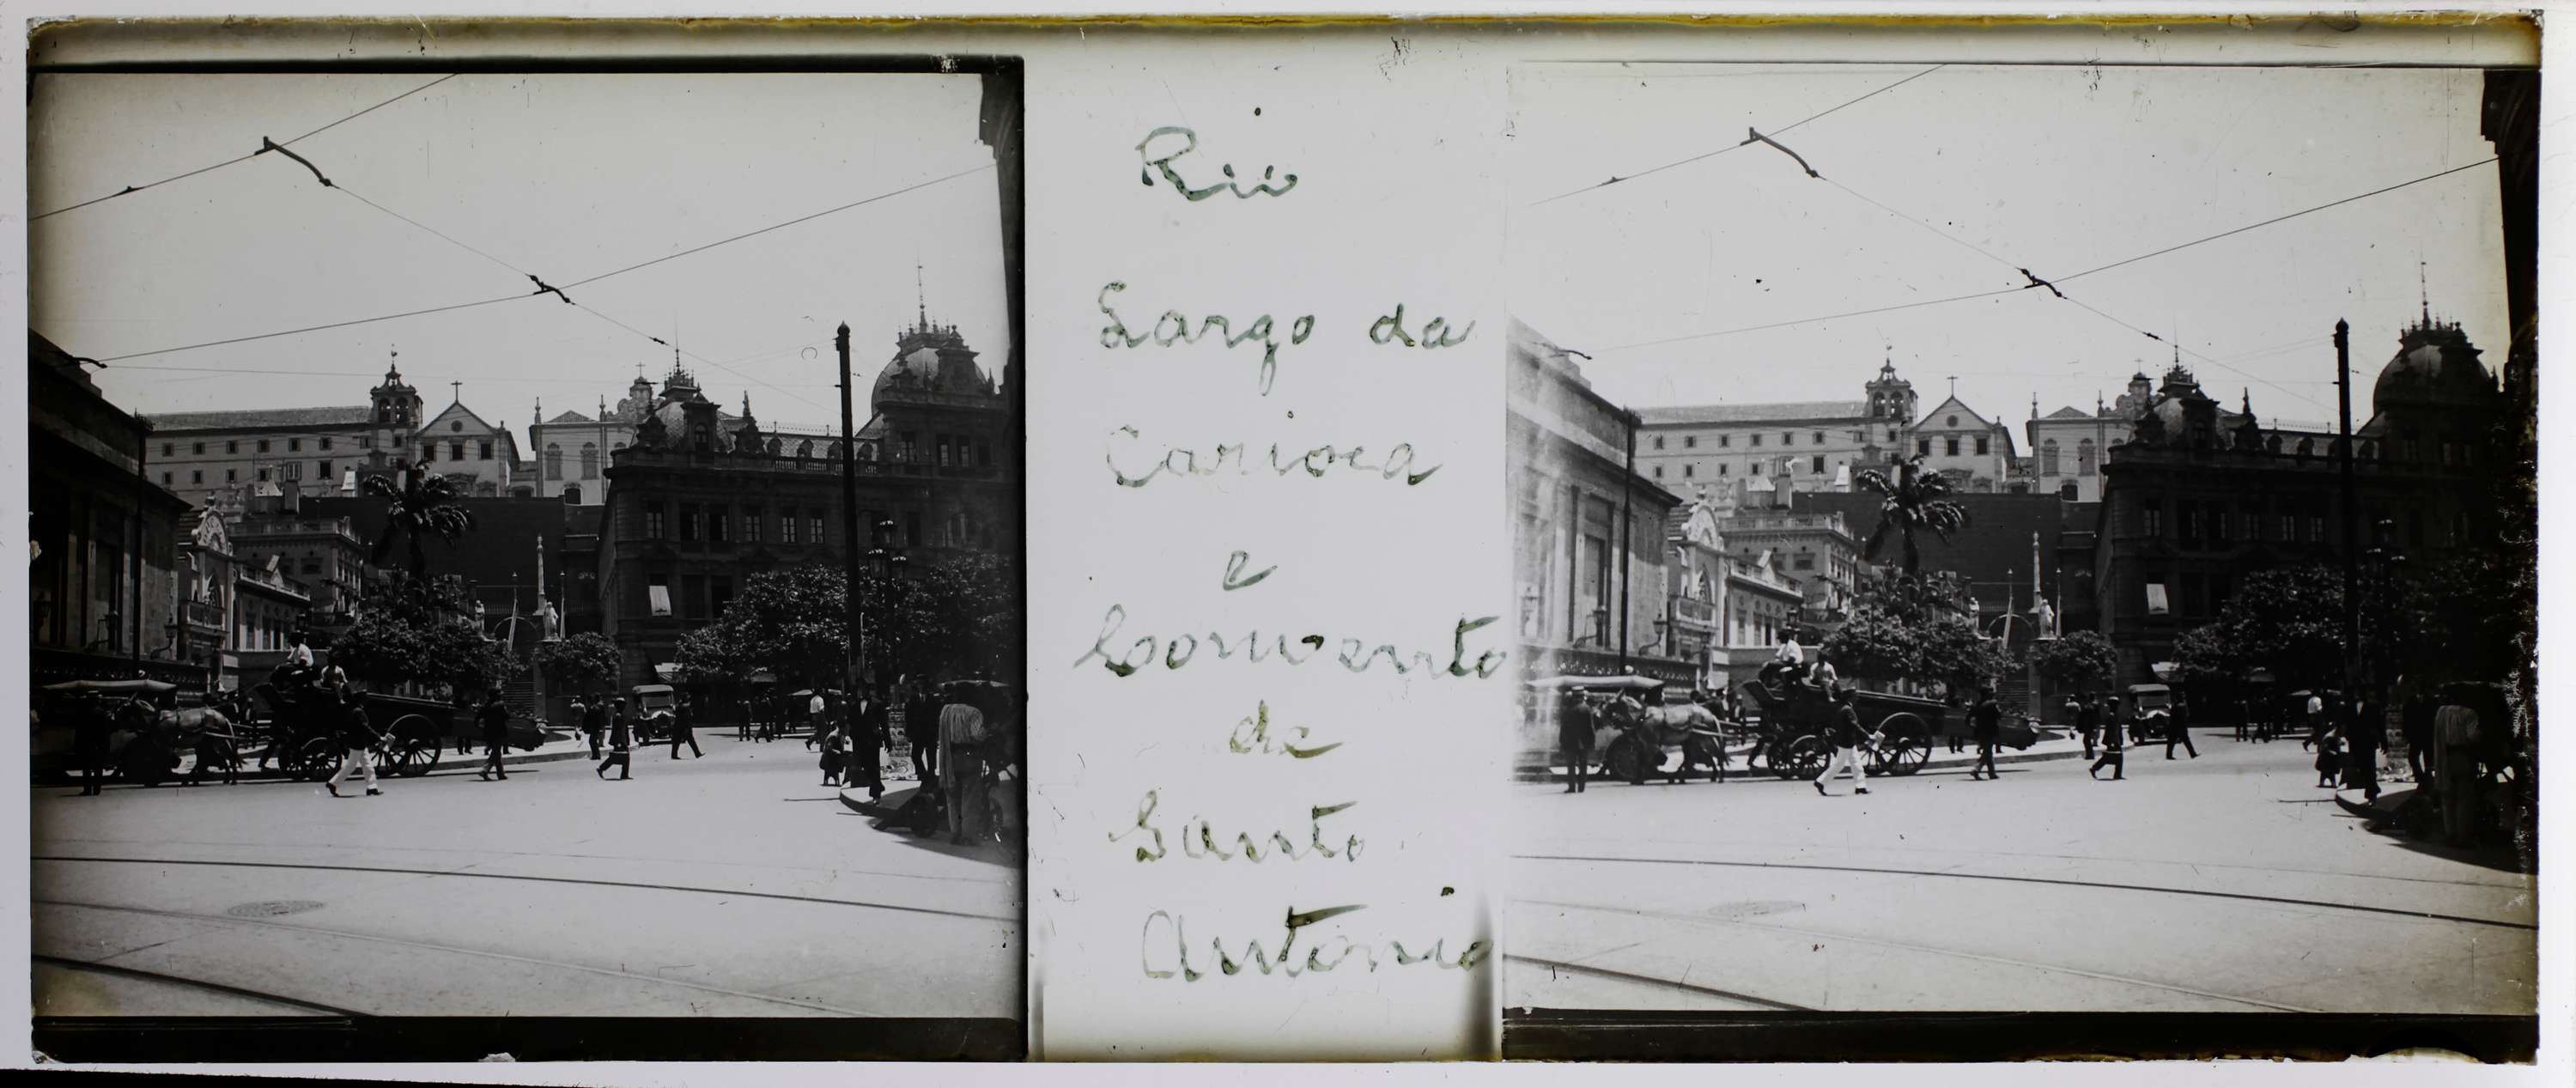 Rio
Largo da
Carioca
e
Convento
de
Santo
Antonio